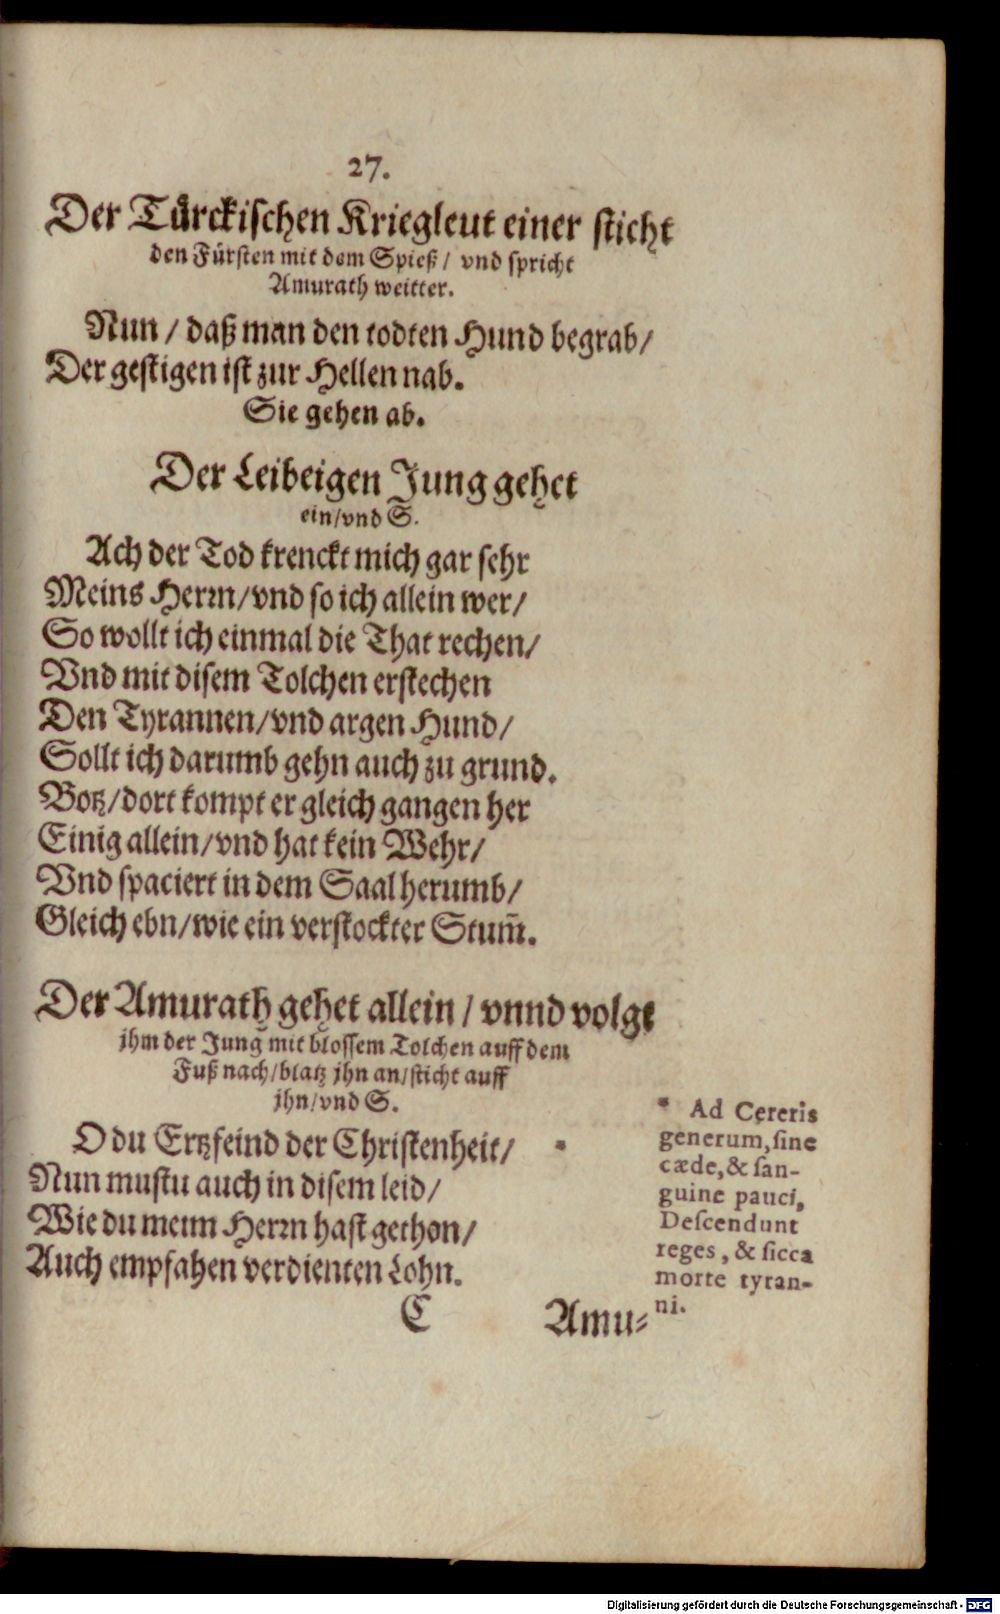 27.
Der Tůrckischen Kriegleut einer sticht
den Fürsten mit dem Spieß / vnd spricht
Amurath weitter.
Nun / daß man den todten Hund begrab /
Der gestigen ist zur Hellen nab.
Sie gehen ab.
Der Leibeigen Jung gehet
ein / vnd S.
Ach der Tod krenckt mich gar sehr
Meins Herrn / vnd so ich allein wer /
So wollt ich einmal die That rechen /
Vnd mit disem Tolchen erstechen
Den Tyrannen / vnd argen Hund /
Sollt ich darumb gehn auch zu grund.
Botz / dort kompt er gleich gangen her
Einig allein / vnd hat kein Wehr /
Vnd spaciert in dem Saal herumb /
Gleich ebn / wie ein verstockter Stum̃.
Der Amurath gehet allein / vnnd volgt
jhm der Jung mit blossem Tolchen auff dem
Fuß nach / blatz jhn an / sticht auff
jhn / vnd S.
O du Ertzfeind der Christenheit / *
Nun mustu auch in disem leid /
Wie du meim Herrn hast gethon /
Auch empfahen verdienten Lohn.
* Ad Cereris
generum, sine
cæde, & san-
guine pauci,
Descendunt
reges, & sicca
morte tyran-
ni.
C
Amu-
Digitalisierung gefördert durch die Deutsche Forschungsgemeinschaft - DFG